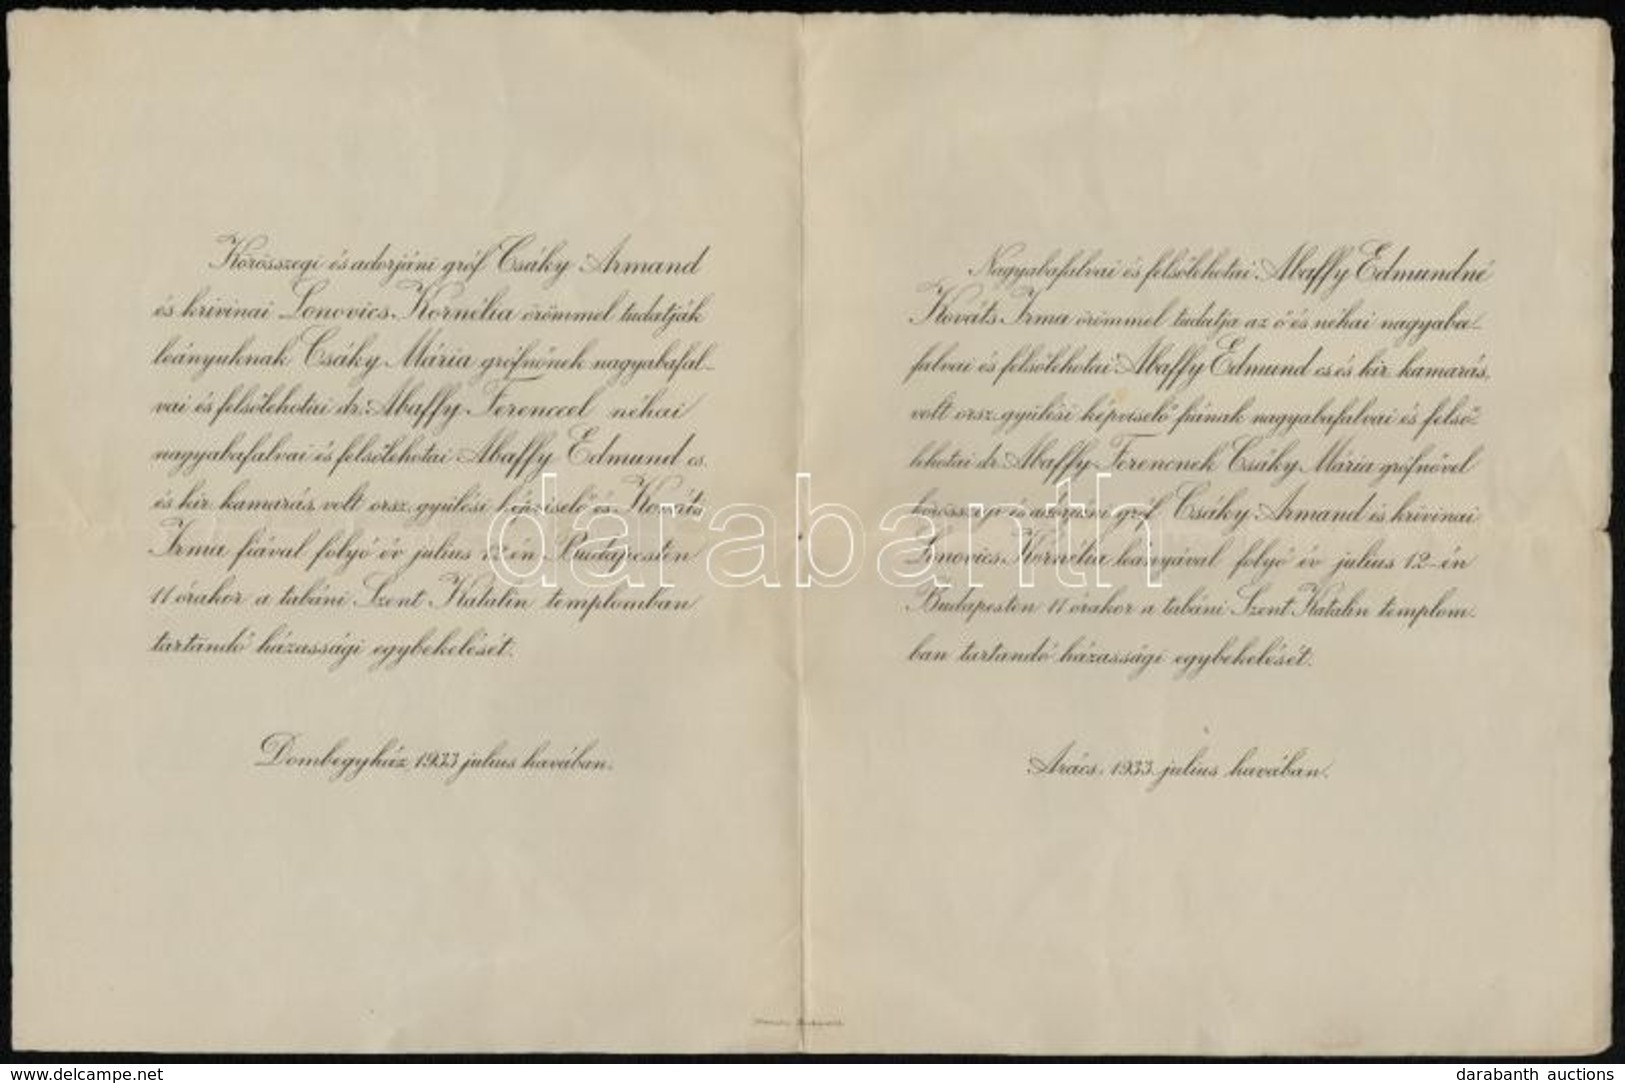 Körösszegi és adorjáni gróf Csáky Armand
és krivinai Lonovics Kornélia örömmel tudatják
leányuknak Csáky Mária grófnőnek nagyabafal-
vai és felsőlehotai dr. Abaffy Ferenccel néhai
nagyabafalvai és felsőlehotai Abaffy Edmund cs.
és kir. kamarás, volt orsz. gyülési képviselő és Kováts
Irma fiával folyó év július 12-én Budapesten
11 órakor a tabáni Szent Katalin templomban
tartandó házassági egybekelését.
Dombegyház, 1933 július havában.
Nagyabafalvai és felsőlehotai Abaffy Edmundné
Kováts Irma örömmel tudatja az ő és néhai nagyaba-
falvai és felsőlehotai Abaffy Edmund cs és kir. kamarás,
volt orsz. gyülési képviselő fiának nagyabafalvai és felső-
lehotai dr. Abaffy Ferencnek Csáky Mária grófnővel
körösszegi és adorjáni gróf Csáky Armand és krivinai
Lonovics Kornélia leányával folyó év július 12-én
Budapesten 11 órakor a tabáni Szent Katalin templom-
ban tartandó házassági egybekelését.
Arács, 1933. július havában.
darabanth
www.delcampe.net
darabanth auctions